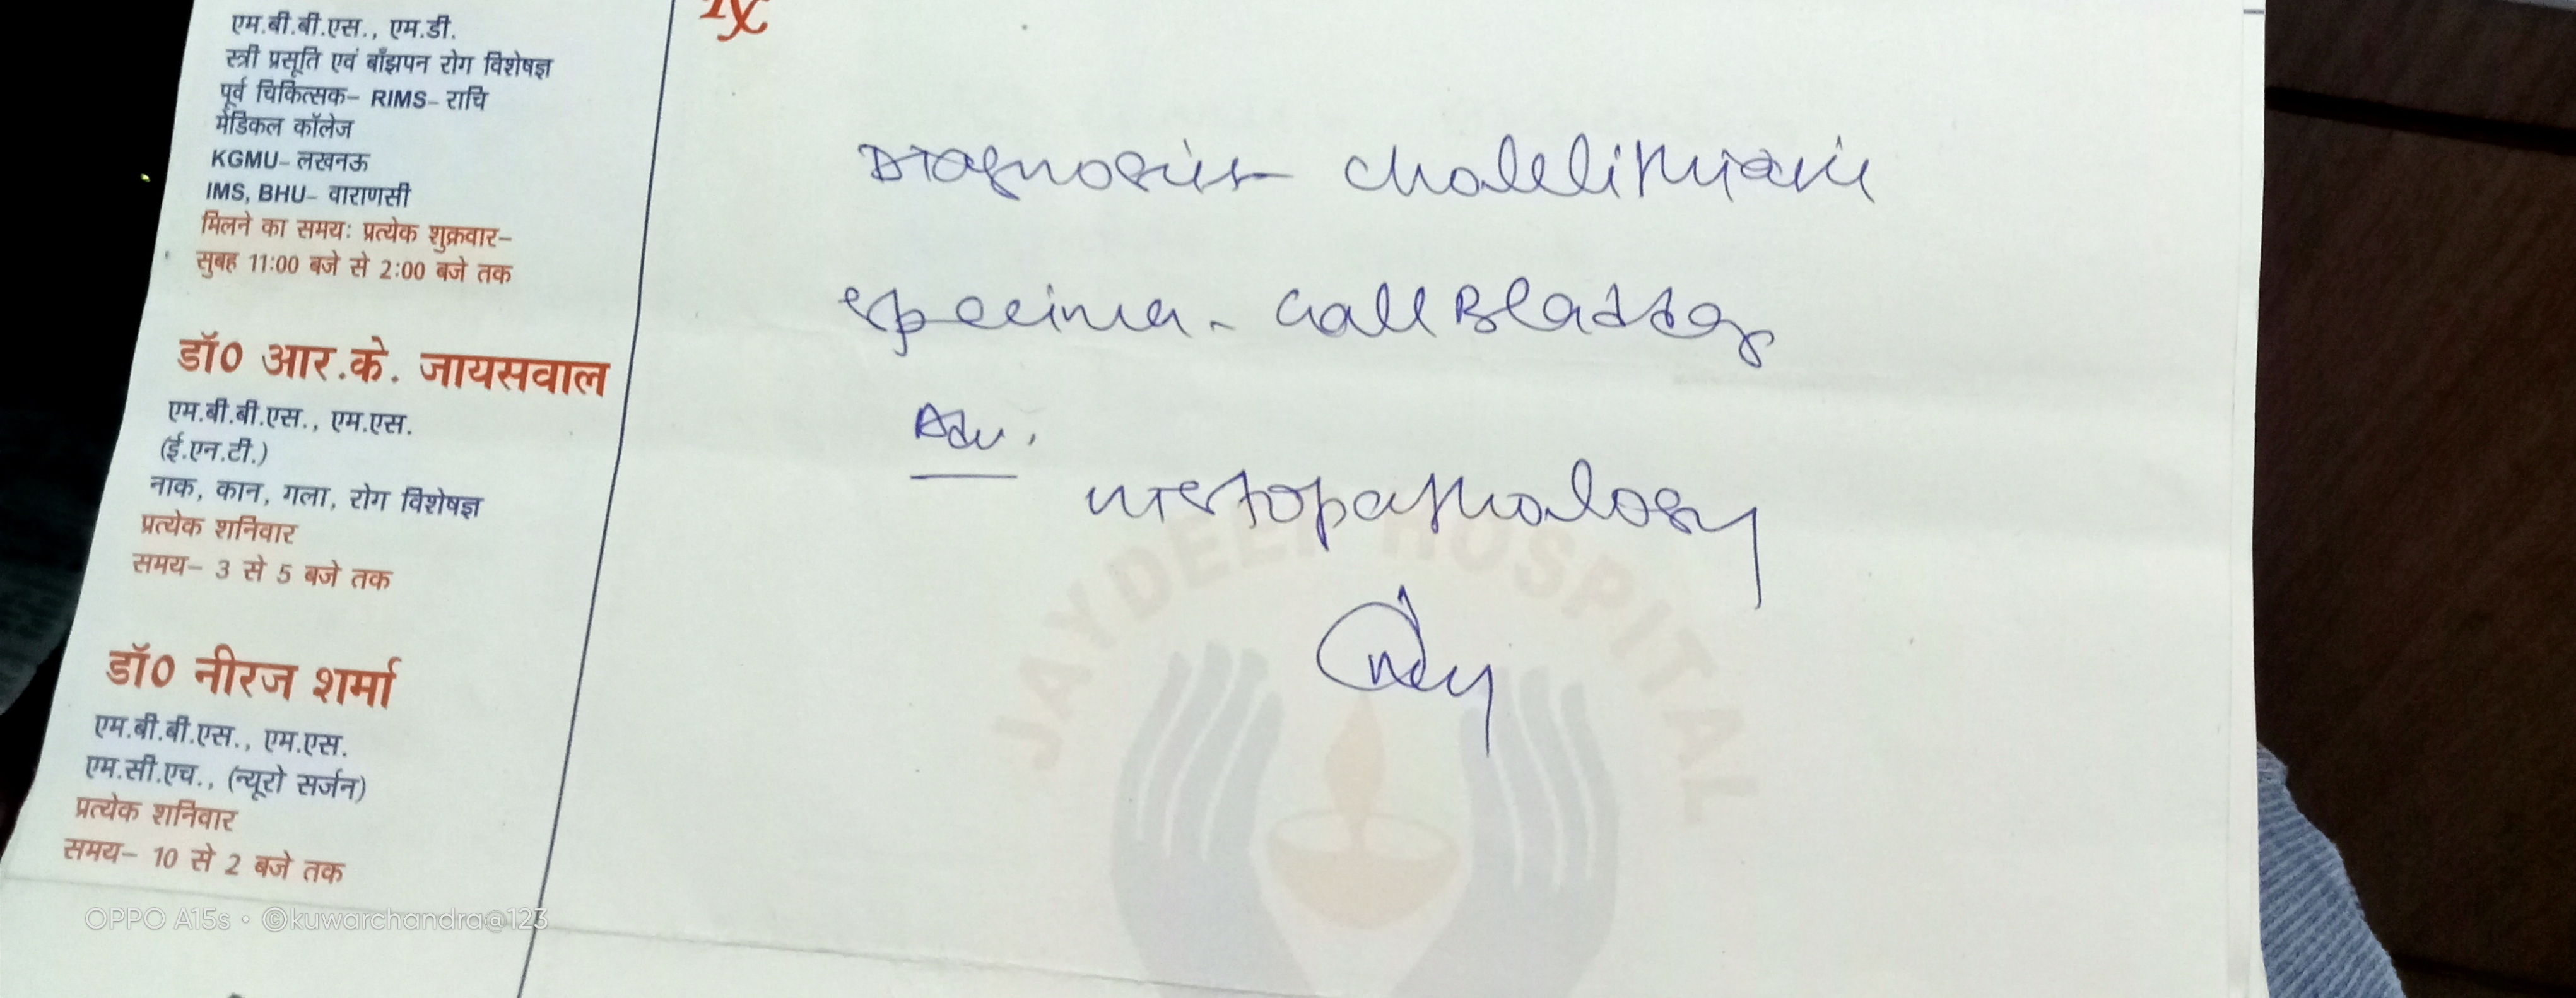 एम.बी.बी.एस., एम.डी.
स्त्री प्रसूति एवं बाँझपन रोग विशेषज्ञ
पूर्व चिकित्सक– RIMS– राचि
मेडिकल कॉलेज
KGMU– लखनऊ
IMS, BHU– वाराणसी
मिलने का समय: प्रत्येक शुक्रवार–
सुबह 11:00 बजे से 2:00 बजे तक
डॉ0 आर.के. जायसवाल
एम.बी.बी.एस., एम.एस.
(ई.एन.टी.)
नाक, कान, गला, रोग विशेषज्ञ
प्रत्येक शनिवार
समय– 3 से 5 बजे तक
डॉ0 नीरज शर्मा
एम.बी.बी.एस., एम.एस.
एम.सी.एच., (न्यूरो सर्जन)
प्रत्येक शनिवार
समय– 10 से 2 बजे तक
Rx
Diagnosis – Cholelithiasis
specimen - Gall Bladder
Adv.
Histopathology
JAYDEEP HOSPITAL
OPPO A15s • ©kuwarchandra@123